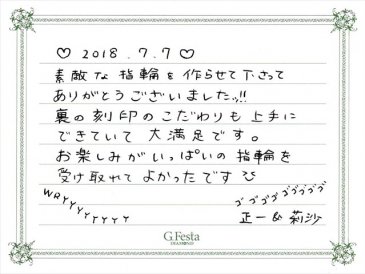 ♡ 2018.7.7 ♡
素敵な指輪を作らせて下さって
ありがとうございましたッ!!
裏の刻印のこだわりも上手に
できていて 大満足です。
お楽しみがいっぱいの指輪を
受け取れて よかったです
WRYYYYYYYY
ゴゴゴゴゴゴゴゴ
正一 & 莉沙
G.Festa
DIAMOND